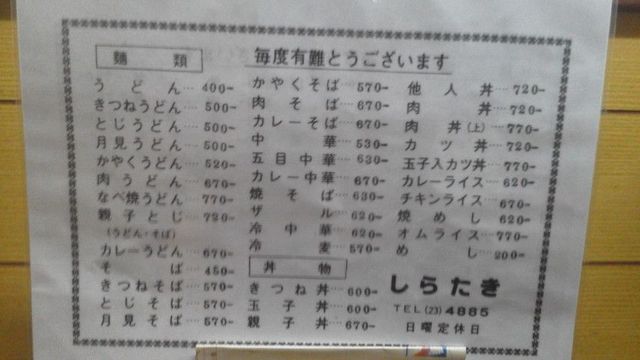 毎度有難とうございます
麺類
うどん…400-
きつねうどん…500-
とじうどん…500-
月見うどん…500-
かやくうどん…520-
肉うどん…670-
なべ焼うどん…770-
親子とじ…720-
(うどん・そば)
カレーうどん…670-
そば…450-
きつねそば…570-
とじそば…570-
月見そば…570-
かやくそば…570-
肉そば…670-
カレーそば…670-
中華…530-
五目中華…630-
カレー中華…670-
焼そば…630-
ザル…620-
冷中華…620-
冷麦…570-
丼物
きつね丼…600-
玉子丼…600-
親子丼…670-
他人丼…720-
肉丼…720-
肉丼(上)…770-
カツ丼…720-
玉子入カツ丼…770-
カレーライス…620-
チキンライス…670-
焼めし…620-
オムライス…770-
めし…200-
しらたき
TEL(23)4885
日曜定休日